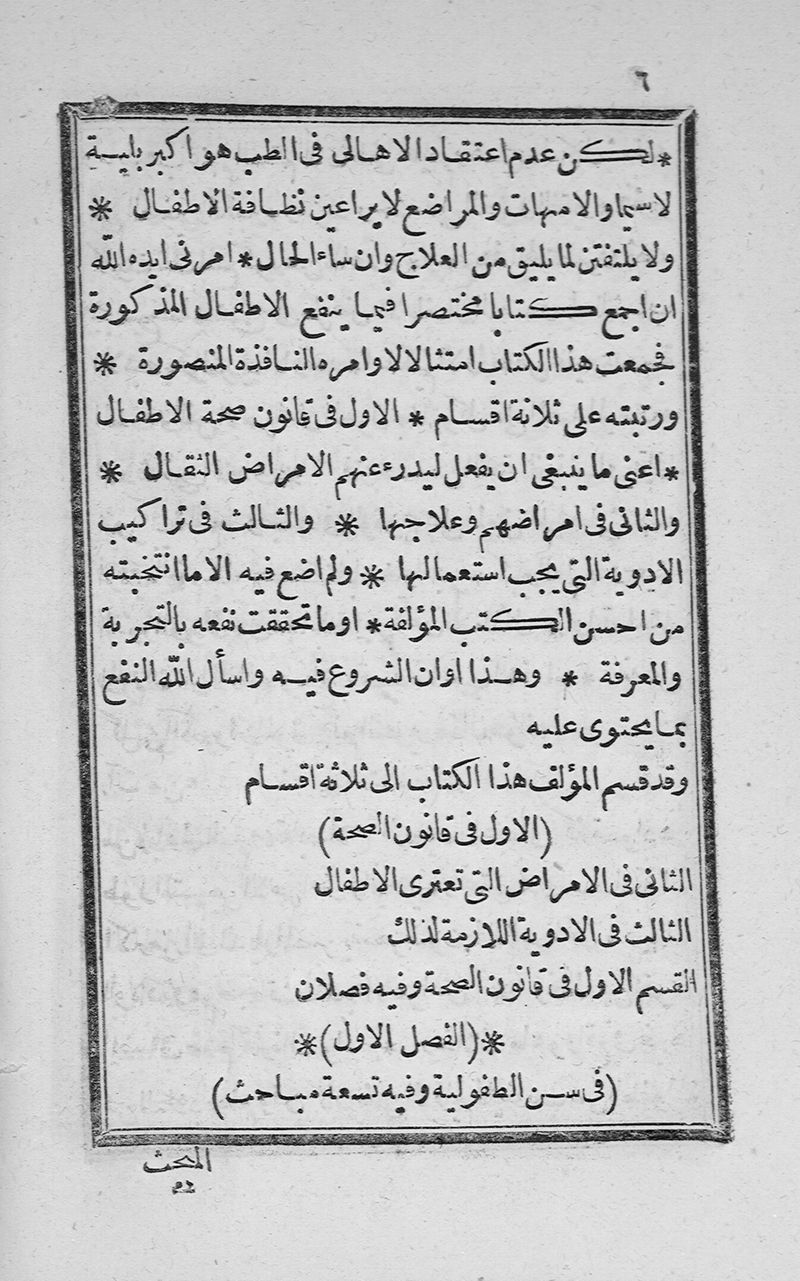 ٦
* لكن عدم اعتقاد الاهالى فى الطب هو اكبر بلية
لاسيما والامهات والمراضع لا يراعين نظافة الاطفال *
ولا يلتفتن لما يليق من العلاج وان ساء الحال * امرنى ايده الله
ان اجمع كتابا مختصرا فيما ينفع الاطفال المذكورة
فجمعت هذا الكتاب امتثالا لاوامره النافذة المنصورة *
ورتبته على ثلاثة اقسام * الاول فى قانون صحة الاطفال
* اعنى ما ينبغى ان يفعل ليدرء عنهم الامراض الثقال *
والثانى فى امراضهم وعلاجها * والثالث فى تراكيب
الادوية التى يجب استعمالها * ولم اضع فيه الا ما انتخبته
من احسن الكتب المؤلفة * او ما تحققت نفعه بالتجربة
والمعرفة * وهذا اوان الشروع فيه واسأل الله النفع
بما يحتوى عليه
وقد قسم المؤلف هذا الكتاب الى ثلاثة اقسام
(الاول فى قانون الصحة)
الثانى فى الامراض التى تعترى الاطفال
الثالث فى الادوية اللازمة لذلك
القسم الاول فى قانون الصحة وفيه فصلان
*(الفصل الاول)*
(فى سن الطفولية وفيه تسعة مباحث)
المبحث